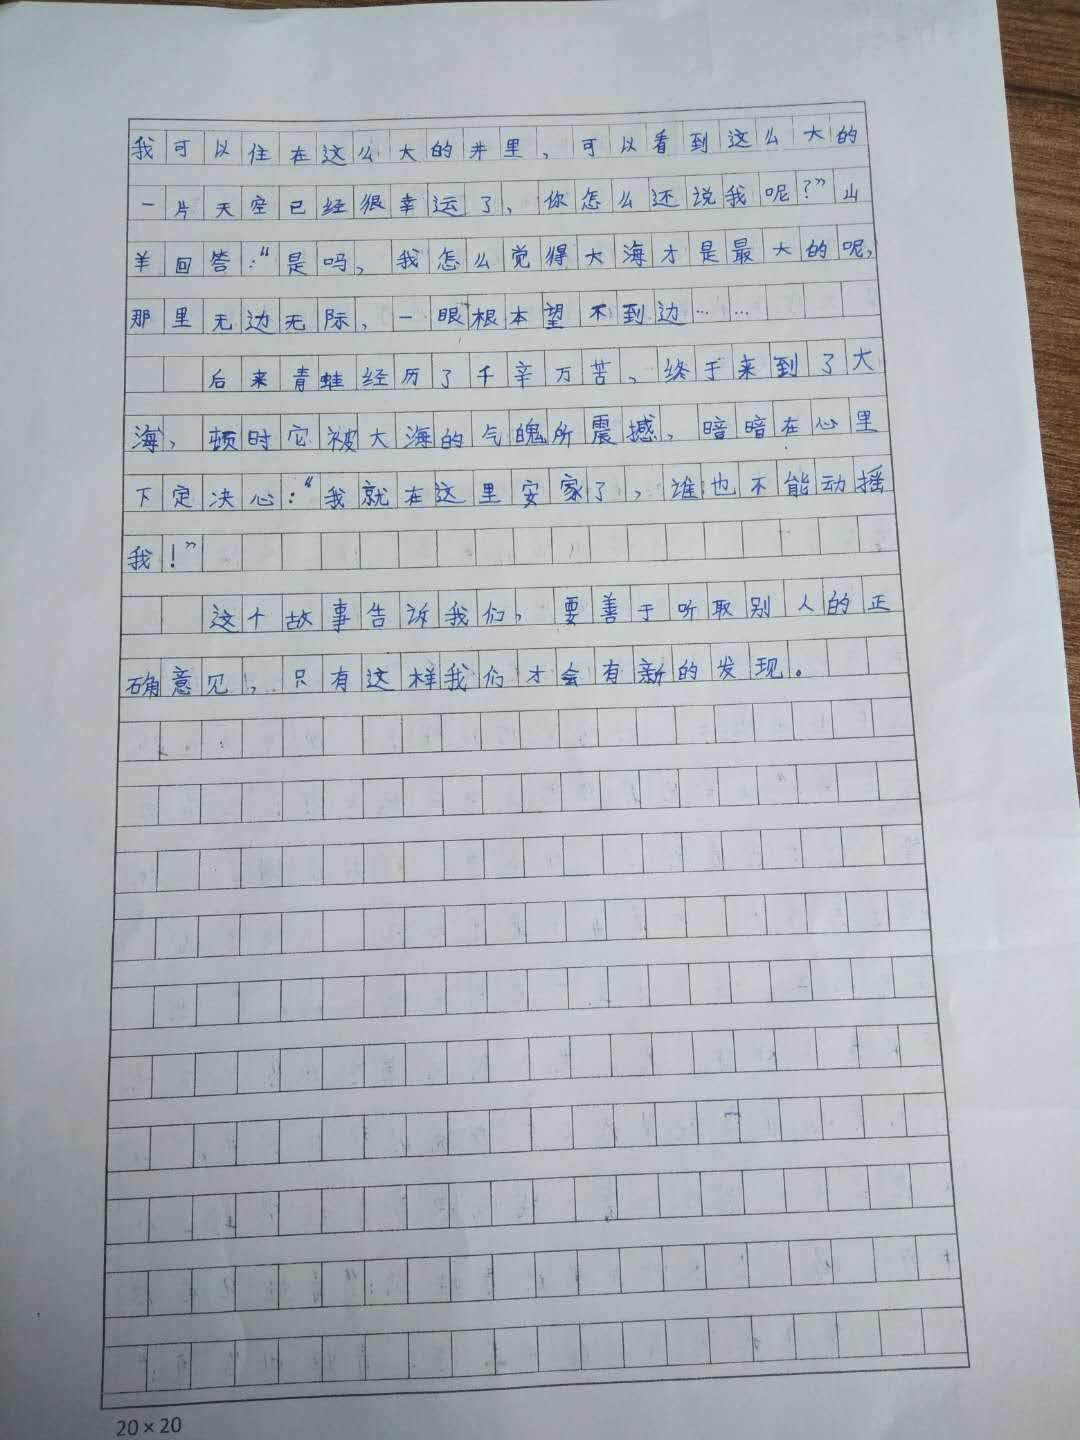 我可以住在这么大的井里，可以看到这么大的
一片天空已经很幸运了，你怎么还说我呢？”山
羊回答：“是吗，我怎么觉得大海才是最大的呢，
那里无边无际，一眼根本望不到边……
后来青蛙经历了千辛万苦，终于来到了大
海，顿时它被大海的气魄所震撼，暗暗在心里
下定决心：“我就在这里安家了，谁也不能动摇
我！”
这个故事告诉我们，要善于听取别人的正
确意见，只有这样我们才会有新的发现。
20×20